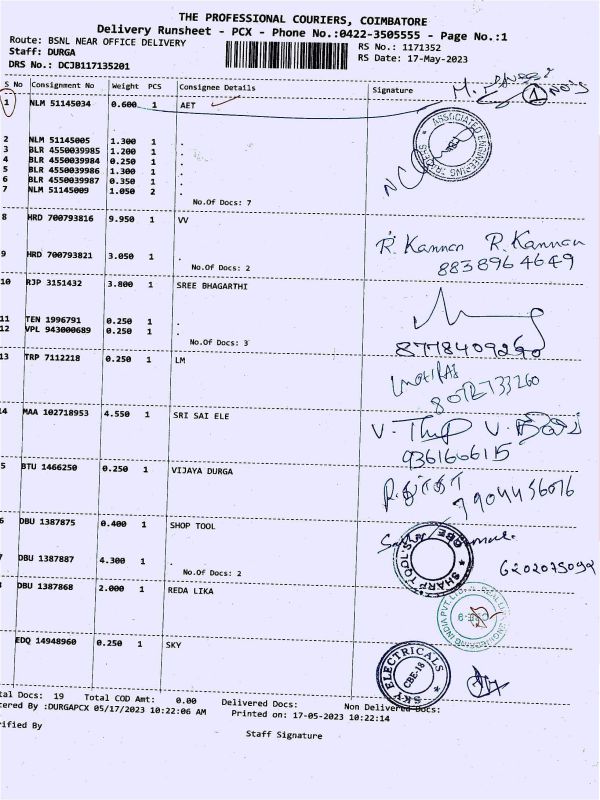 THE PROFESSIONAL COURIERS, COIMBATORE
Delivery Runsheet - PCX - Phone No.:0422-3505555 - Page No.:1
Route: BSNL NEAR OFFICE DELIVERY
RS No.: 1171352
Staff: DURGA
RS Date: 17-May-2023
DRS No.: DCJB117135201
S No Consignment No Weight PCS Consignee Details Signature
1 NLM 51145034 0.600 1 AET
1 NO's
2 NLM 51145005 1.300 1 .
3 BLR 4550039985 1.200 1 .
4 BLR 4550039984 0.250 1 .
5 BLR 4550039986 1.300 1 .
6 BLR 4550039987 0.350 1 .
7 NLM 51145009 1.050 2 .
No.Of Docs: 7
ASSOCIATED ENGINEERING TRADERS
8 HRD 700793816 9.950 1 VV
R. Kannan R. Kannan
8838964649
9 HRD 700793821 3.050 1 .
No.Of Docs: 2
10 RJP 3151432 3.800 1 SREE BHAGARTHI
11 TEN 1996791 0.250 1 .
12 VPL 943000689 0.250 1 .
No.Of Docs: 3
8778409260
13 TRP 7112218 0.250 1 LM
14 MAA 102718953 4.550 1 SRI SAI ELE
9361666115
5 BTU 1466250 0.250 1 VIJAYA DURGA
7904456076
6 DBU 1387875 0.400 1 SHOP TOOL
7 DBU 1387887 4.300 1 .
No.Of Docs: 2
SHARP TOOL'S CBE
6202075092
8 DBU 1387868 2.000 1 REDA LIKA
EDQ 14948960 0.250 1 SKY
SKY ELECTRICALS
CBE-18
tal Docs: 19 Total COD Amt: 0.00 Delivered Docs: Non Delivered Docs:
tered By :DURGAPCX 05/17/2023 10:22:06 AM Printed on: 17-05-2023 10:22:14
rified By
Staff Signature